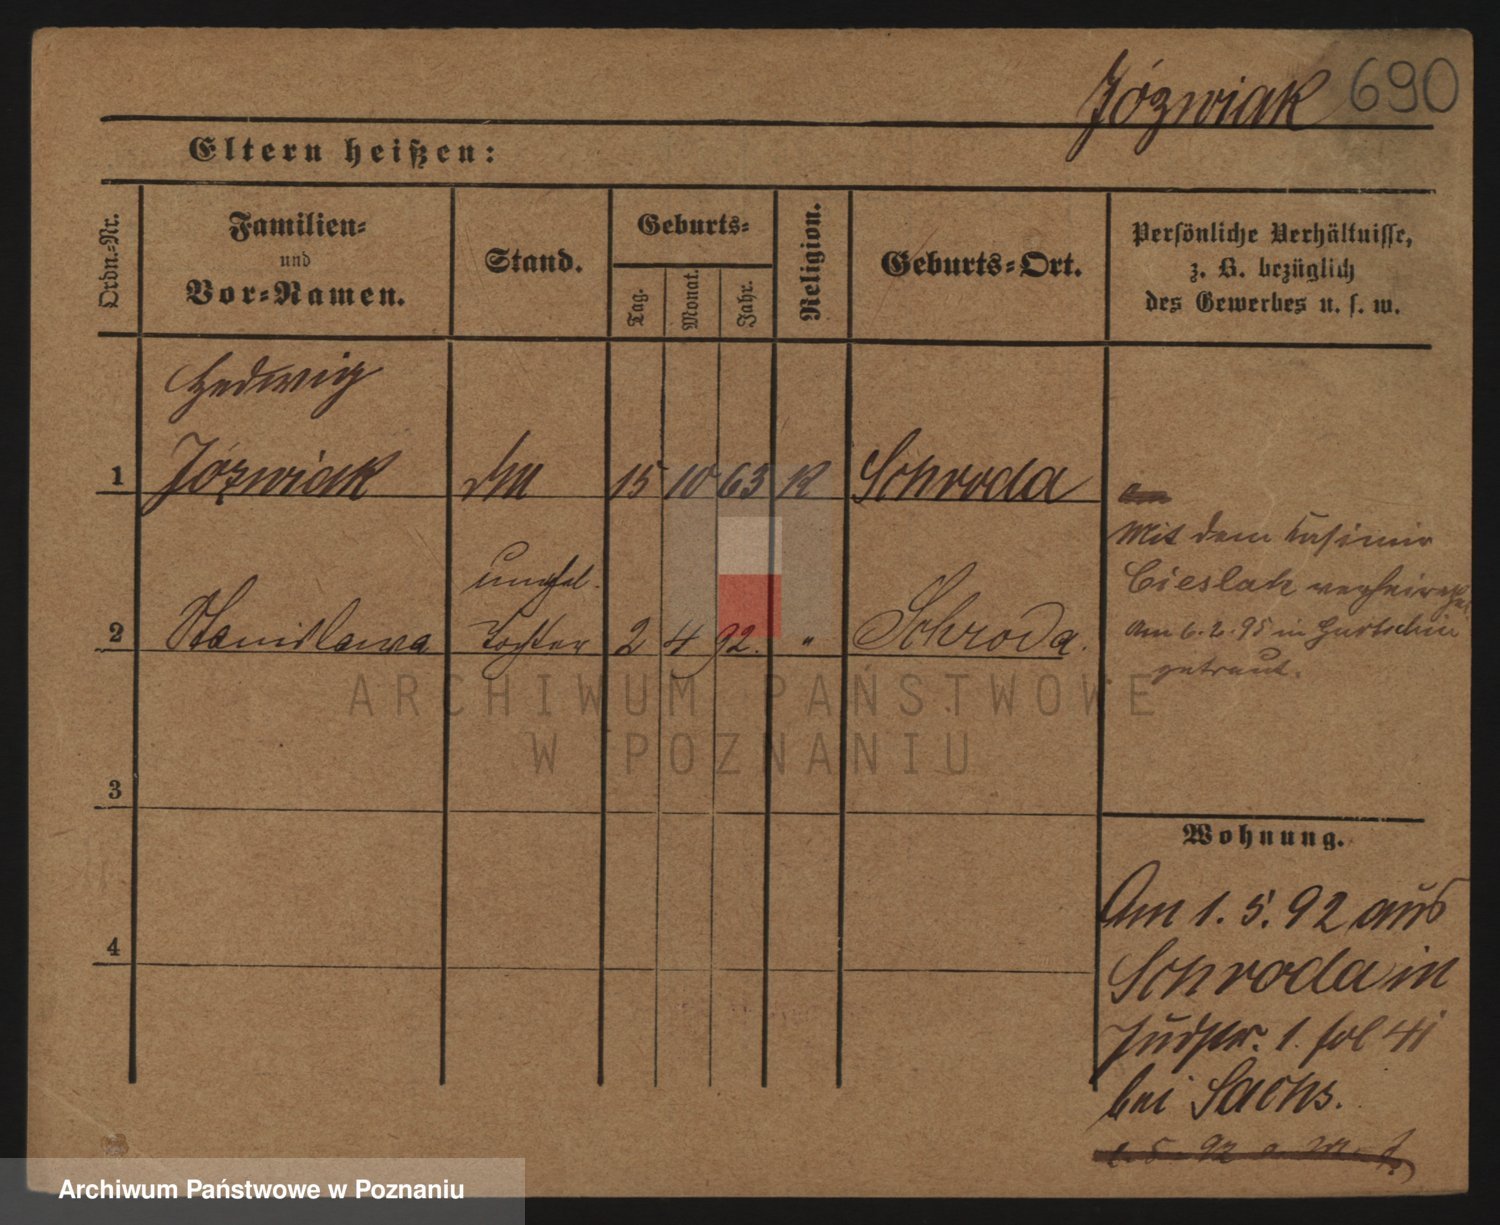 Józwiak 690
Eltern heißen:
Ordn.-Nr.
Familien-
und
Vor-Namen.
Stand.
Geburts-
Tag.
Monat.
Jahr.
Religion.
Geburts-Ort.
Persönliche Verhältnisse,
z. B. bezüglich
des Gewerbes u. s. w.
Hedwig
1 Józwiak 15 10 63 K Schroda
Mit dem Kasimir
Cieslak verheirathet
Am 6.2.95 in Gurtschin
getraut.
unehel.
2 Stanislawa Tochter 2 4 92. " Schroda.
3
4
Wohnung.
Am 1. 5. 92 aus
Schroda in
Judstr. 1. fol 41
bei Sachs.
ARCHIWUM PAŃSTWOWE
W POZNANIU
Archiwum Państwowe w Poznaniu